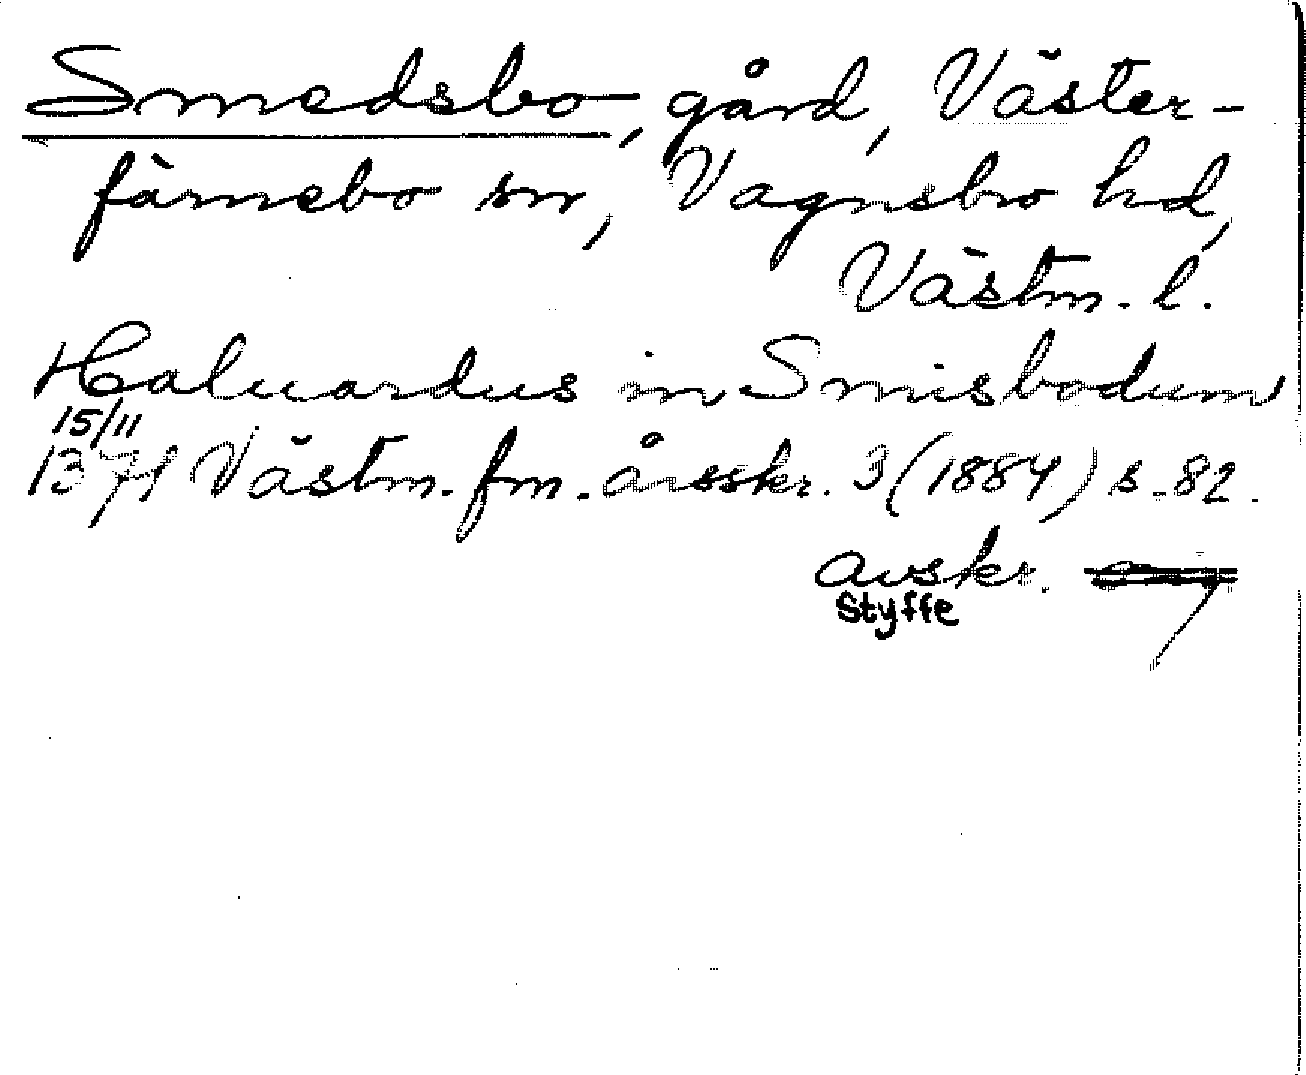 Smedsbo, gård, Väster-
färnebo sn, Vagnsbro hd,
Västm. l.
Haluardus in Smisbodum
15/11
1371 Västm. fm. årsskr. 3 (1884) s. 82.
avskr.
Styffe